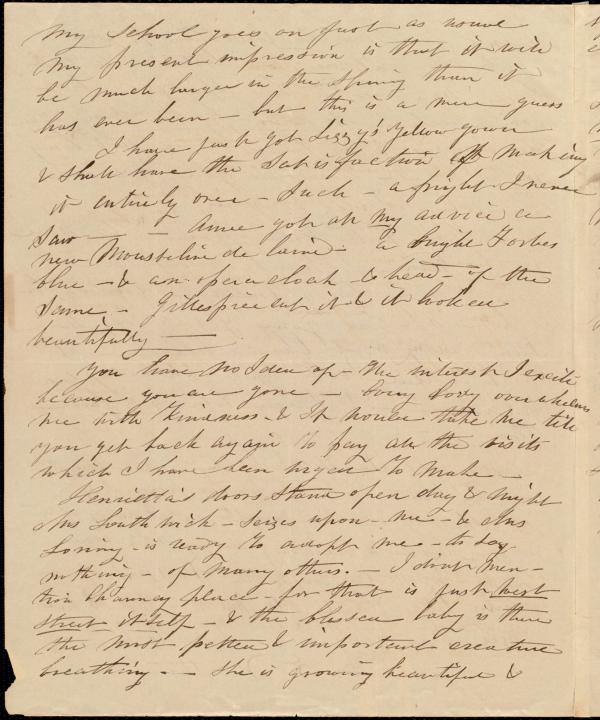 My school goes on just as usual
My present impression is that it will
be much larger in the spring than it
has ever been - but this is a mere guess
I have just got Lizzy's yellow gown
& shall have the satisfaction of making
it entirely over - Such - a fright I never
saw - - Anne got at my advice a
new Mousseline de laine - a bright Forbes
blue - & an opera cloak & head - of the
same - Gillespie cut it & it looked
beautifully -
You have no Idea of - the interest I excite
because you are gone - Every body overwhelms
me with kindness - & It would take me till
you get back again to pay all the visits
which I have been urged to make -
Henrietta's doors stand open day & night
Mrs Southwick - seizes upon - me - & Mrs
Loring - is ready to adopt me - to say
nothing - of many others. - I don't men-
tion Chauncy place - for that is just west
street itself - & the blessed baby is there
the most petted & important creature
breathing - - She is growing beautiful &